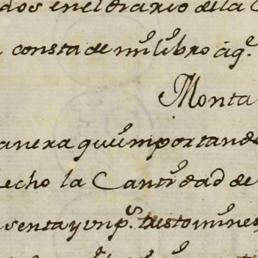 dos en el Erario de la C
consta de mi libro aq.
Monta
anera que importando
echo la Cantidad de
senta y un p.s testo mines